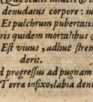 denudatus corpore: iu
Et pulchrum pubertatis
ris quidem mortalibus
Est viuus, adhuc stren
derit.
d progressus ad pugnam
T terra infixo, labia den